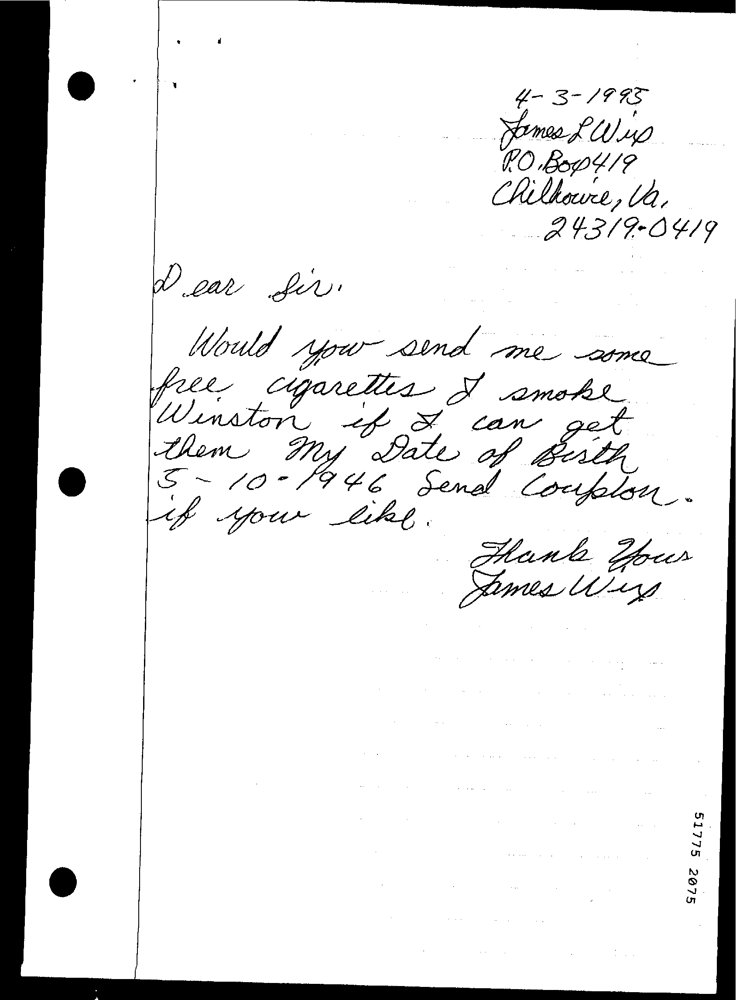 4-3-1995
James L Wix
P.O. Box 419
Chilhowie, Va.
24319-0419
Dear Sir.
Would you send me some
free cigarettes I smoke
Winston if I can get
them My Date of Birth
5-10-1946 Send Couplon.
if you like.
Thank Yous
James Wix
51775 2075